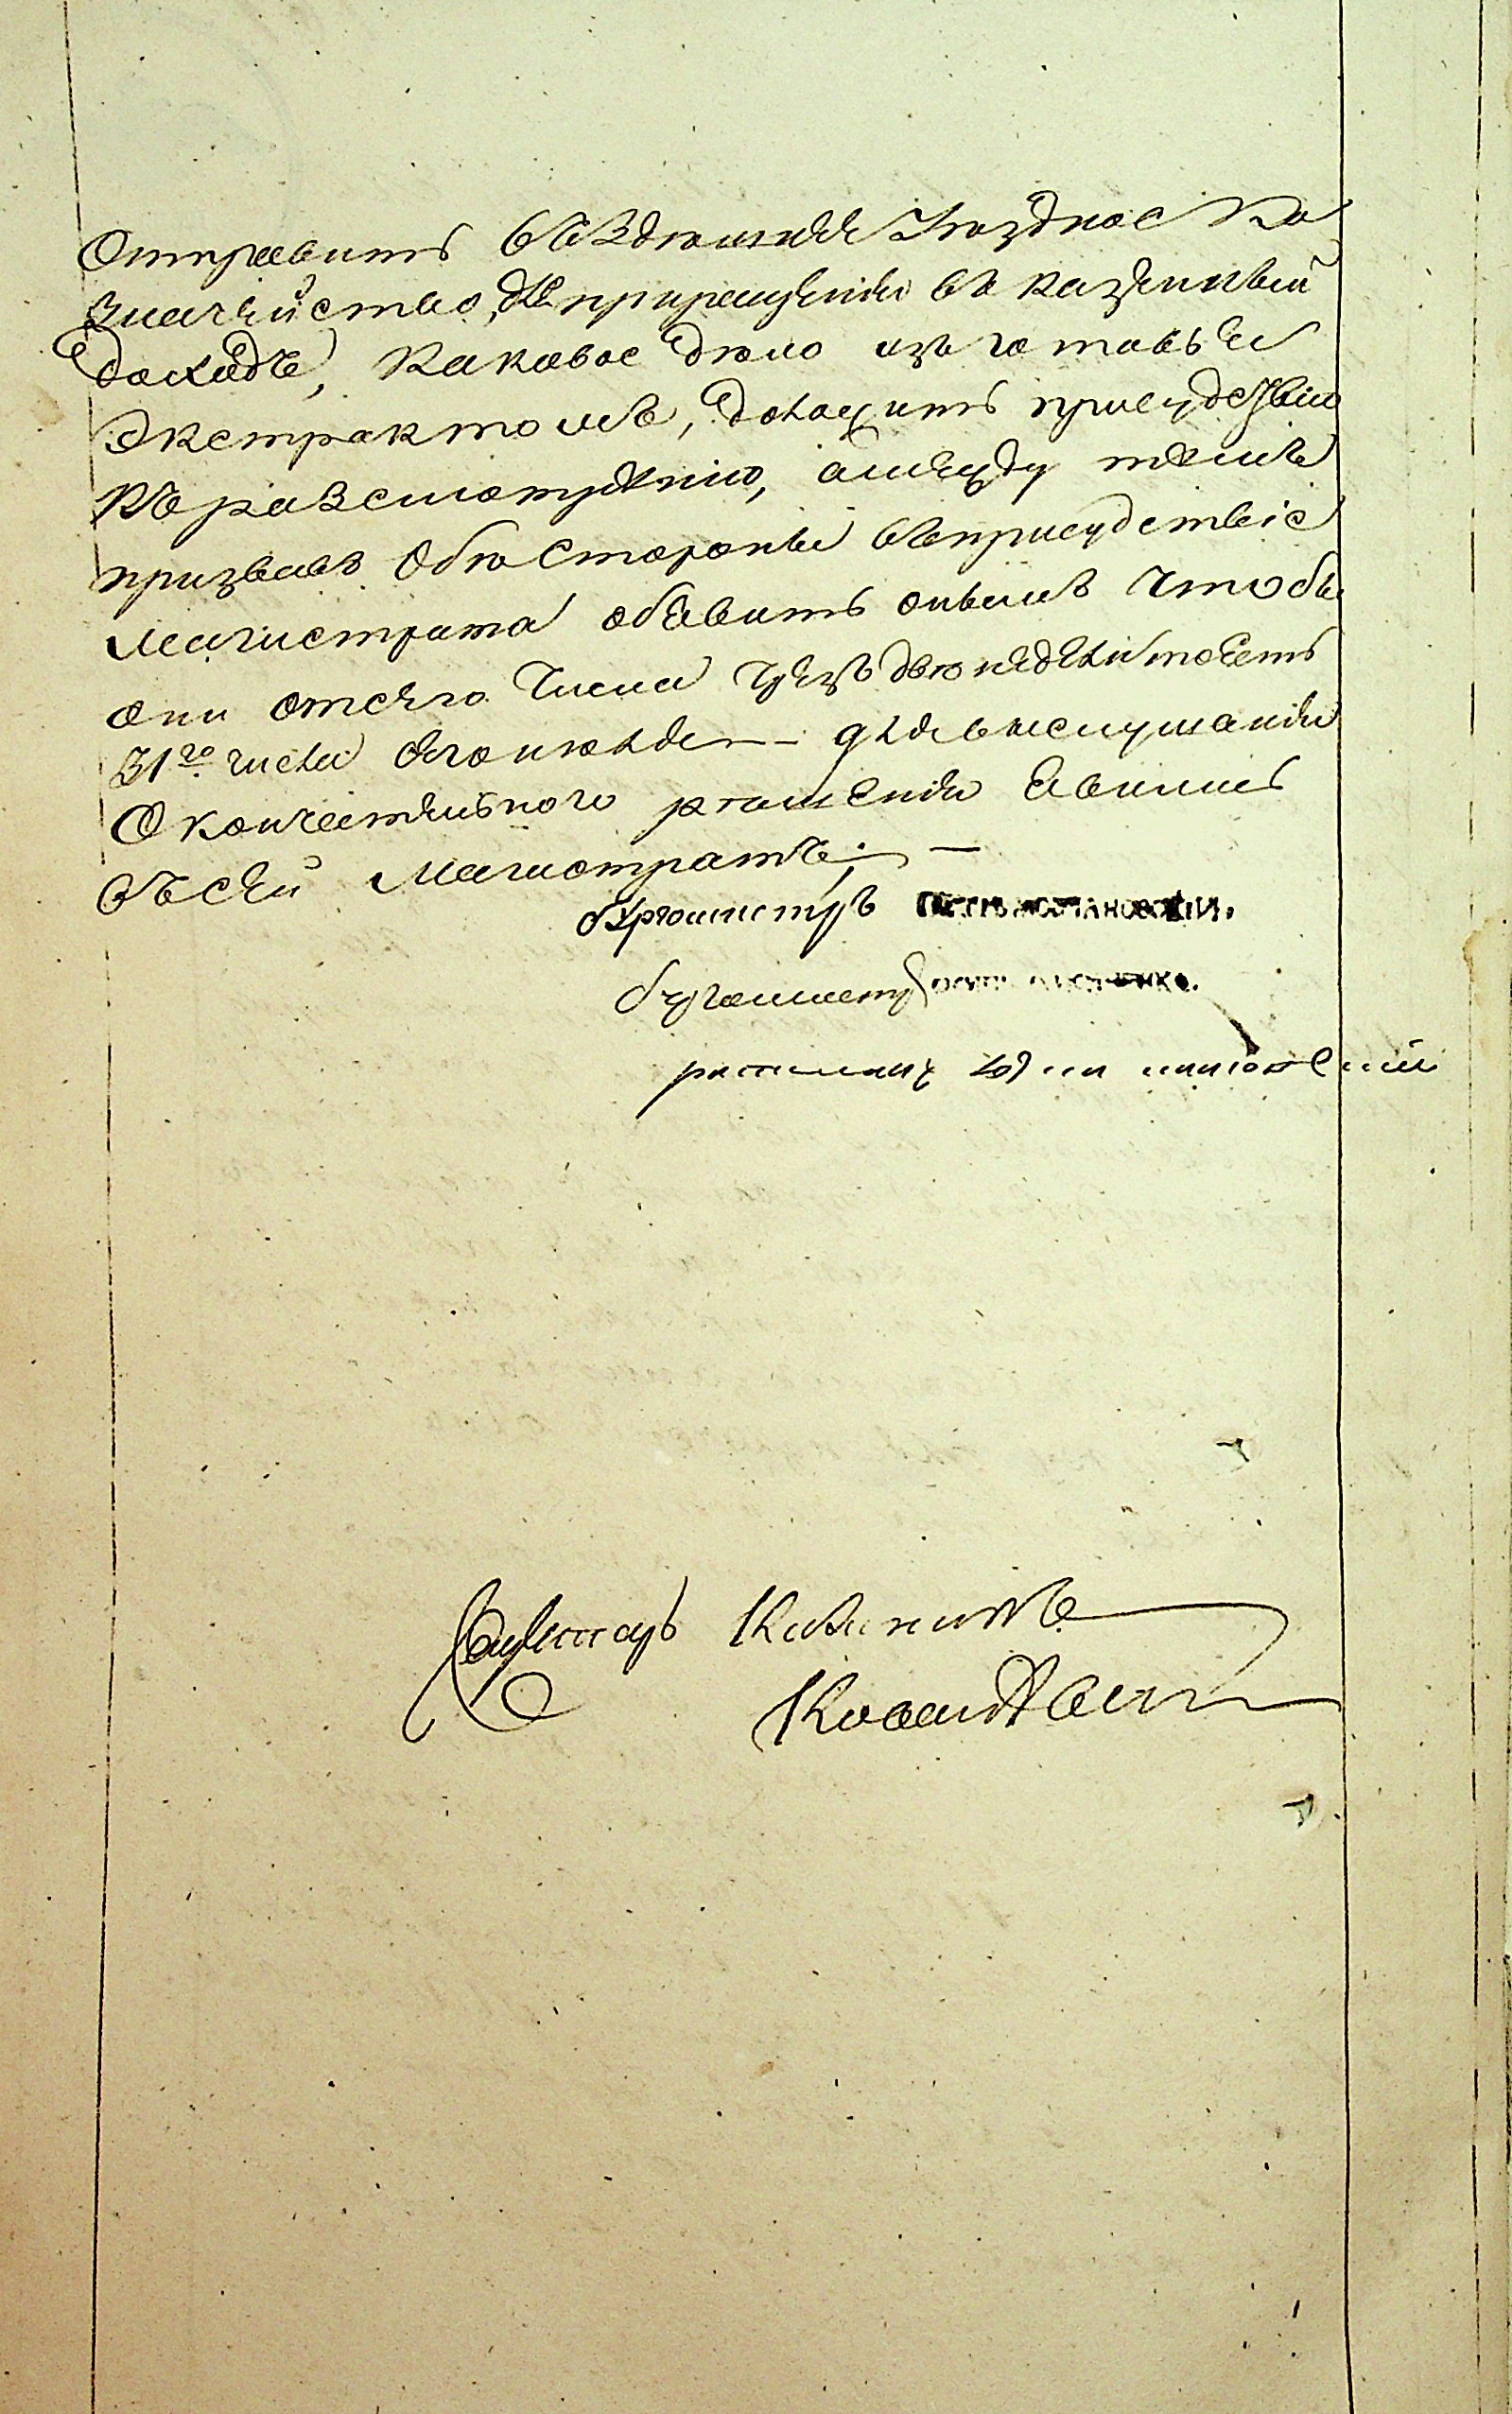 Отправить въ Здешнее Уѣздное Ка
значейство, для пріращенія въ казенный
доходъ, каковое дѣло изъготовъя
Экстрактомъ, доложить присудствію
Къ разсмотренію, а между темъ
призвавъ обѣ Стороны въ присудствіе
Магистрата объявить онымъ чтобы
они от сего числа чрезъ двѣ недѣли то есть
31го числа Июля для выслушанія
Окончательного решенія явились
въ сей Магистратъ. —
бургомистръ
бургомистръ
ратманъ
Секретарь